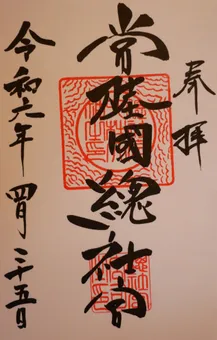 奉拝
常陸國總社宮
令和六年 四月二十五日